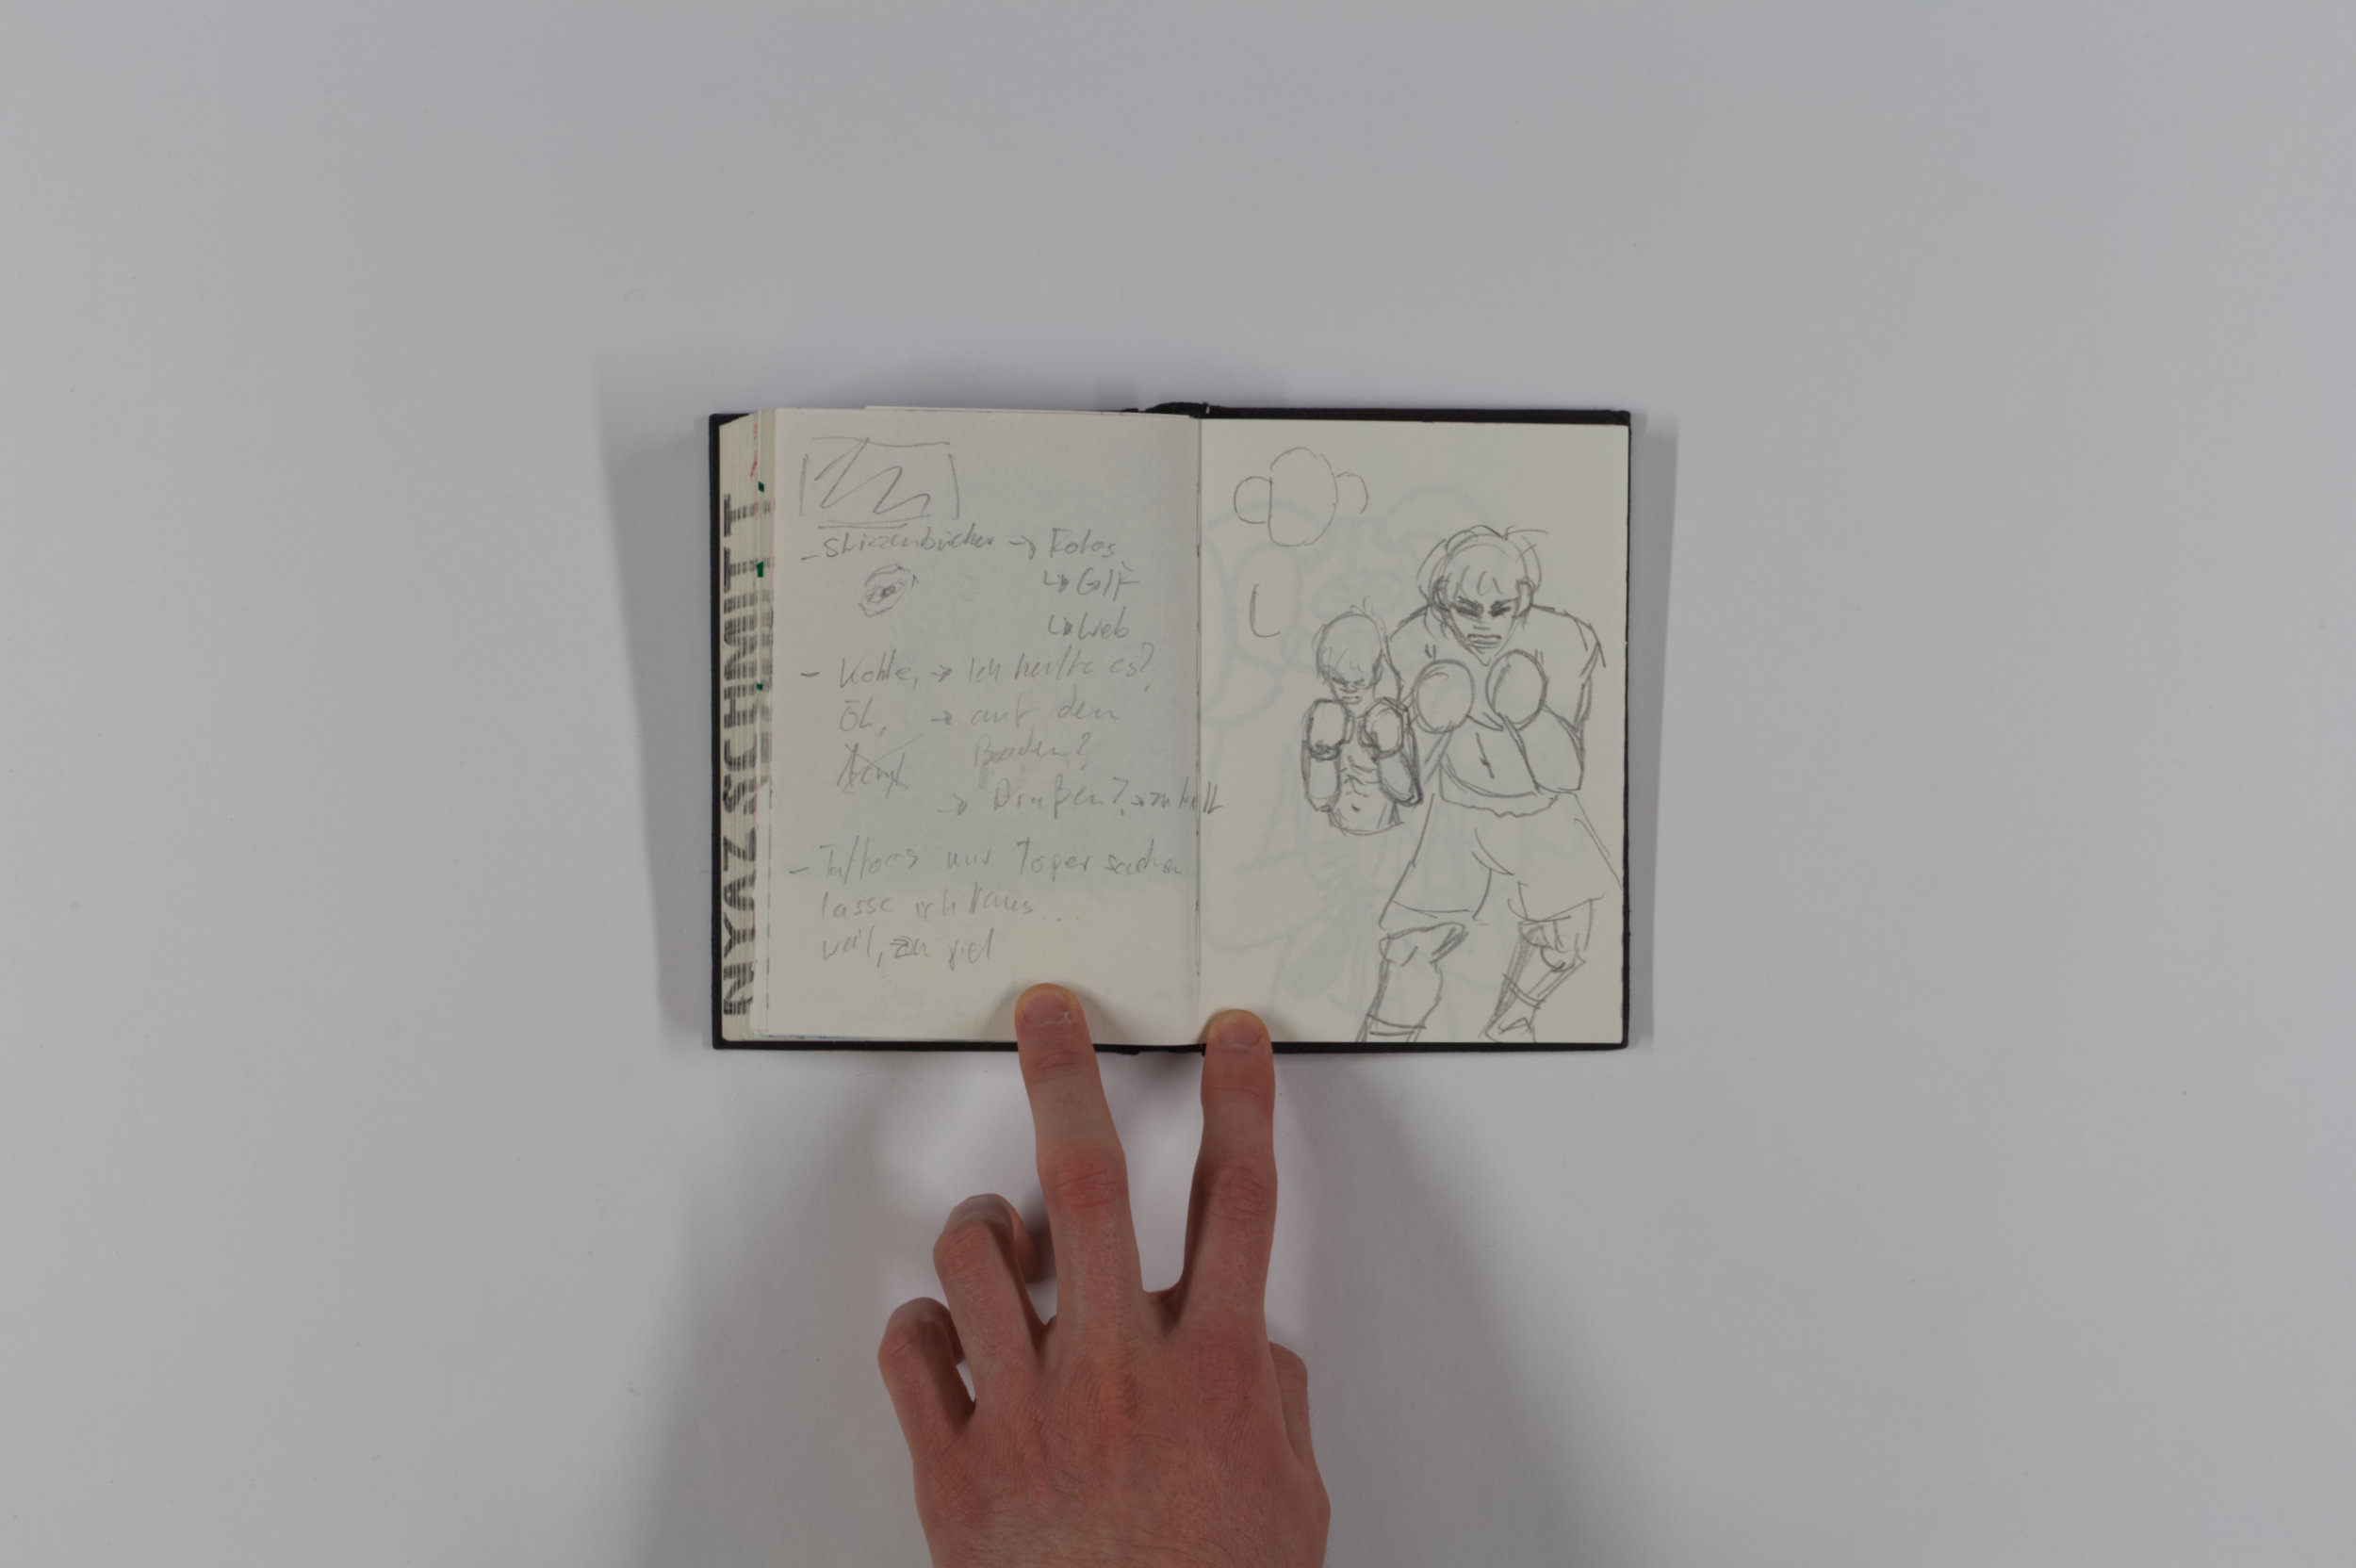 NYAZ SCHMITT
- Skizzenbücher → Fotos
↳ GIF
↳ Web
- Kohle, → Ich halte es?
ÖL, → auf den
Acryl Boden?
→ Draußen? → zu hell
- Tattoos und Toper sachen
lasse ich raus...
weil, zu viel